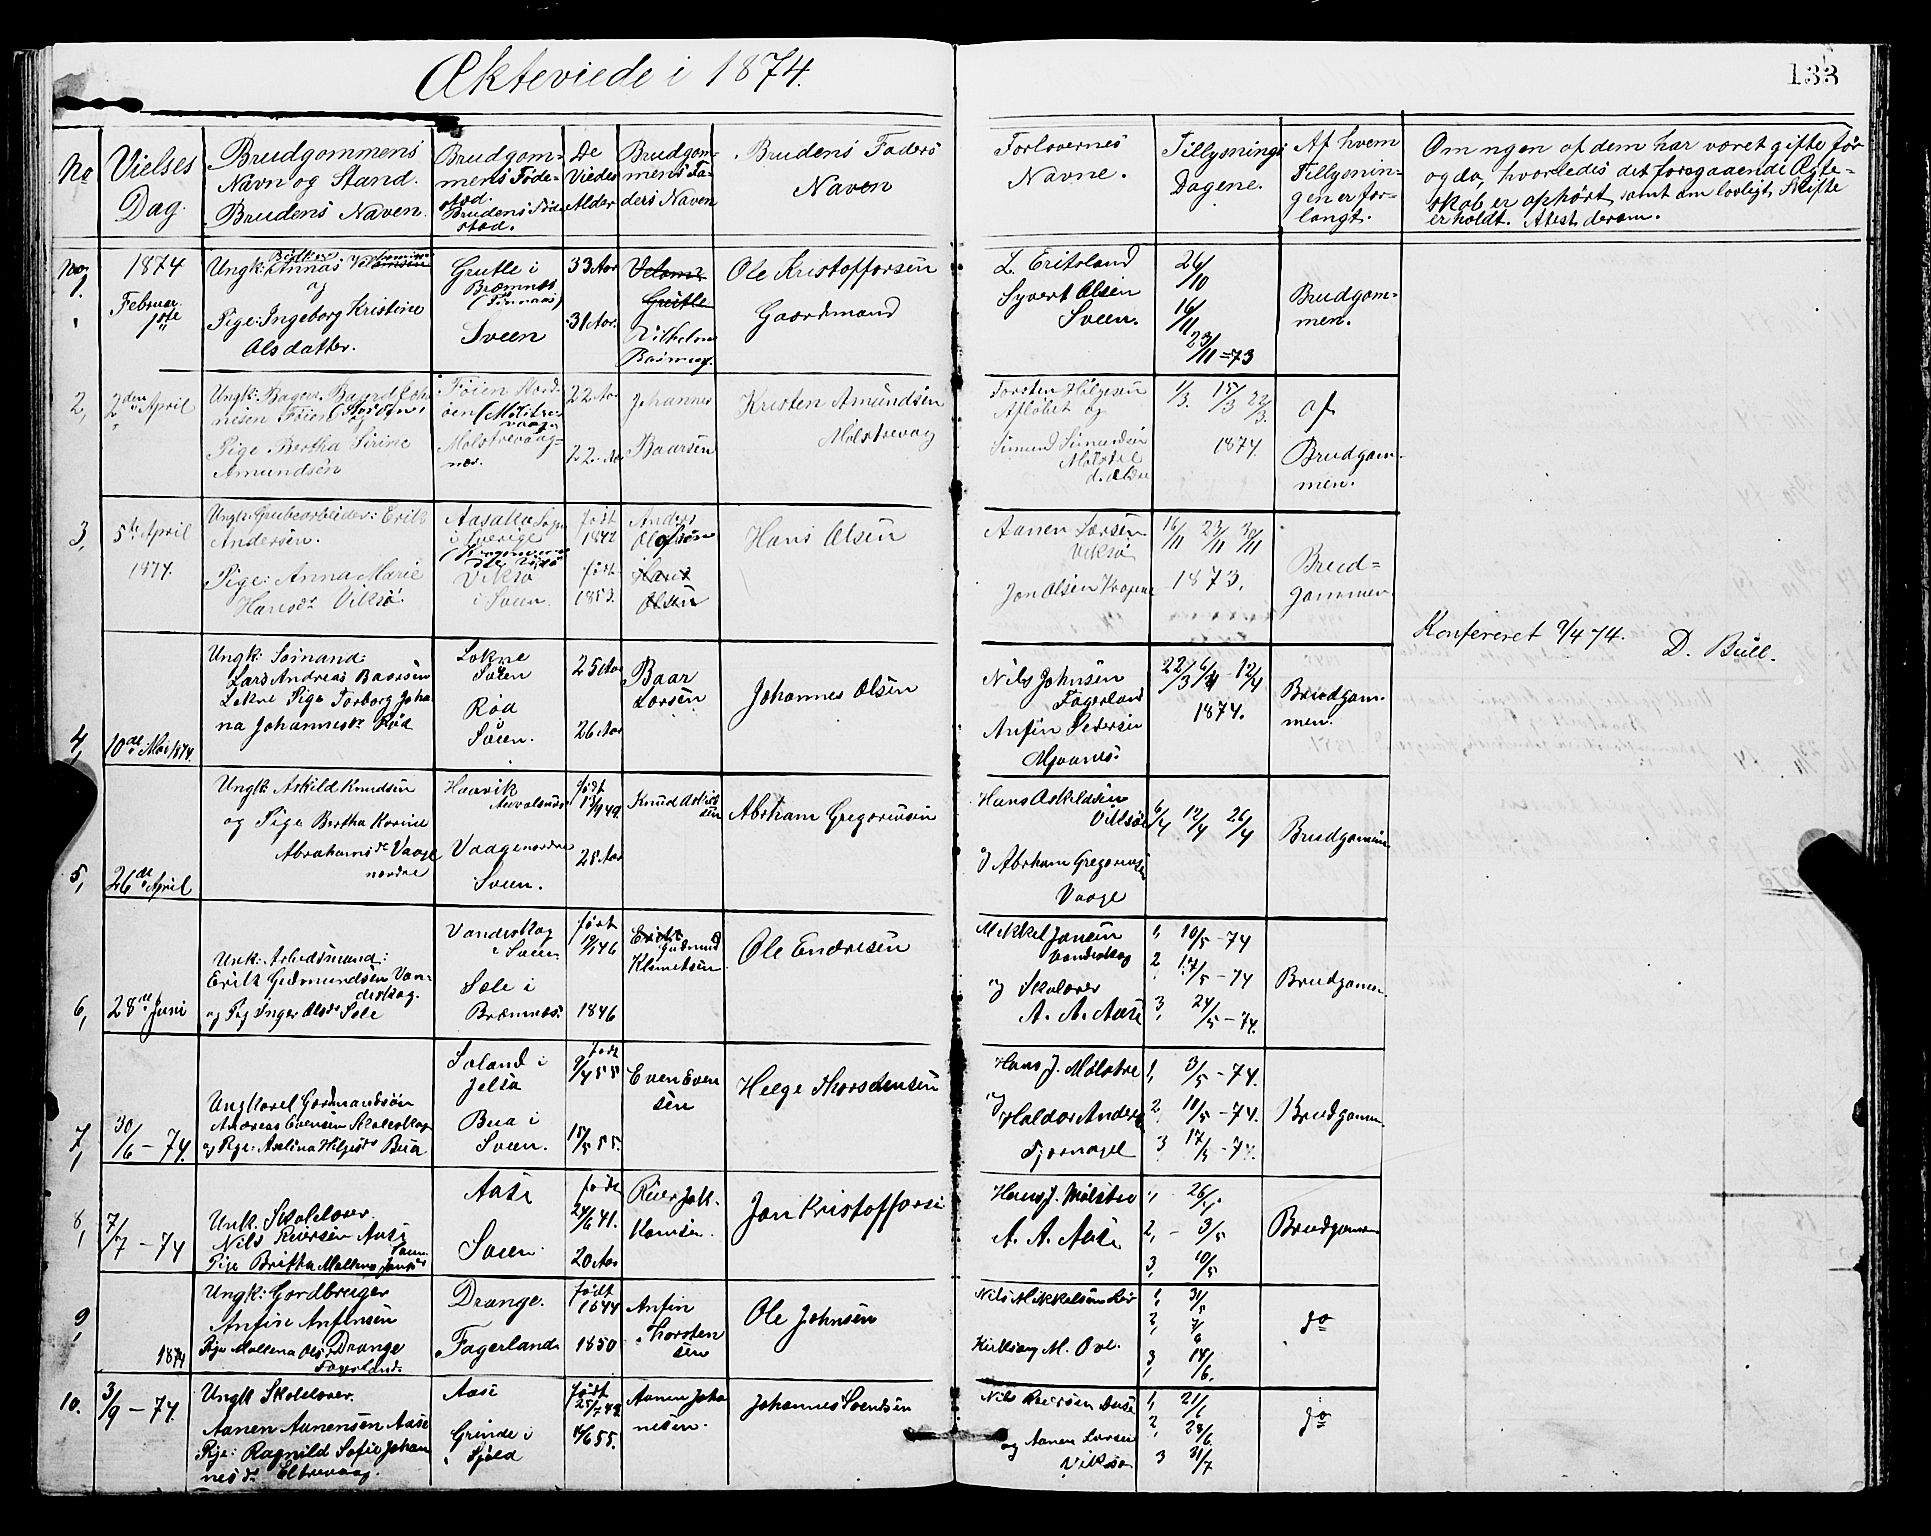 Ækteviede i 1874.
133
No
Vielses
Dag.
Brudgommens
Navn og Stand.
Brudens Naven.
Brudgom-
mens Føde-
stad.
Brudens Føde
stad.
De
Vieder
Alder
Brudgom-
mens Fa-
ders Naven
Brudens Faders
Naven
Forlovernes
Navne.
Tillysnings
Dagene.
Af hvem
Tillysnin-
gen er for-
langt.
Om ngen af dem har været gifte før
og da, hvorledis det foregaaende Ægte-
skab er ophørt samt om lovligt Skifte
erholdt. Atest derom.
No
1.
1874
Februar
Ungk:
og
Pige: Ingeborg Kristine
Olsdatter.
Grutle i
Bræmnes
(Finnaas)
Sveen
33 Aar
31 Aar.
Grutle
Ole Kristoffersen
Gaardmand
L. Eritsland
Syvert Olsen
Sveen.
26/10
16/11
23/11 = 73
Brudgom-
men.
2,
2den April
Ungk:
Pige Bertha Sirine
Amundsen
22 Aar
22 Aar
Johannes
Baarsen
Kristen Amundsen
Molstrevag
Torsten Helgesen
og
Simund Simundsen
1/3. 15/3 22/3.
1874.
af
Brudgom-
men.
3,
5te April
1874.
Ungk: Grubearbeider: Erik
Andersen.
Pige: Anna Marie
Hansdr Viksø.
i Sverige
Viksø
i Sveen.
født
1842
født
1853.
Anders
Olafsøn
Hans
Olsen
Hans Olsen
Aanen Larsen
Viksø
Jon Olsen
16/11 23/11 30/11
1873.
Brud=
gommen
Konfereret 9/4 74. D. Bull.
4,
10de Mai 1874.
Ungk:
Lars Andreas Baarsen
Lokne Pige Torborg Joha
na Johannesdr Rød
Lokne
Sveen
Rød
Sveen.
25 Aar
26 Aar
Baar
Larsen
Johannes Olsen
Nils Johnsen
Fagerland
Anfin Pedersen
22/3 6/4 - 12/4
1874.
Brudgom-
men.
5,
26de April
Ungk: Askild Knudsen
og Pige Bertha Karine
Abrahamsdr Vaage
nordre
Haavik
Vaagenordre
Sveen.
født
13/9 49.
28 Aar
Knud Askild
sen
Abrham Gregoriusen
Hans Askildsen
og Abrham Gregoriusen
Vaage
6/4 12/4 26/4
Brudgommen
6,
28de Juni
Unk: Arbeidsmand:
Erik Gudmundsen Van-
deskog.
og Pig Inger Olsdr Sele
Vandeskog
i Sveen
Sele i
Bræmnes.
født
1846
Gudmund
Klemetsen
Ole Endresen
Mikkel Jansen
Vandeskog
og Skolærer
A. A. Aase
1, 10/5 - 74
2, 17/5 - 74
3, 24/5 - 74.
Brudgomen
7,
30/6 - 74.
Andreas Evensen
og Pige: Aselina Helgesdr Bua
i
Jelsa
Bua i
Sveen.
født
9/4 55
15/5 55.
Even Even
sen
Helge Thorstensen
Hans J. Molstre
og Haldor Anders
Tjernagel
1, 3/5 - 74.
2, 10/5 - 74.
3, 17/5 - 74.
Brudgomen.
8,
7/7 - 74
Unk. Skolelærer.
Nils Reiersen Aase
Pige Britha Maltena
Aase
Sveen.
født
24/6 41.
20 Aar
Reier
Jon Kristoffersen
Hans J. Molstre
A. A. Aase
1, 26/
2, - 3/5
3, 10/5
Brudgomen
9,
1874
Ungk: Gardbruger
Anfin Anfinsen
Pije Maltena Olsdr Drange
Fagerland.
Drange.
Fagerland.
født
1844
1850
Anfin
Thorsten
sen
Ole Johnsen
Nils Mikkelsen
1, 31/5
2, 7/6
3, 14/6.
do
10.
3/9 - 74.
Ungk Skolelærer.
Aanen Aanensen Aase
Pije: Ragnild Sofie Johan
nesdr. Eltrevaag.
Aase
Grinde i
Fjeld
født
25/7 49.
4/6 55.
Aanen Joha
nesen.
Johannes Svendsen
Nils Reiersen Aase
og Aanen Larsen
Viksø
1, 21/6
2, 28/6.
3 31/7
do